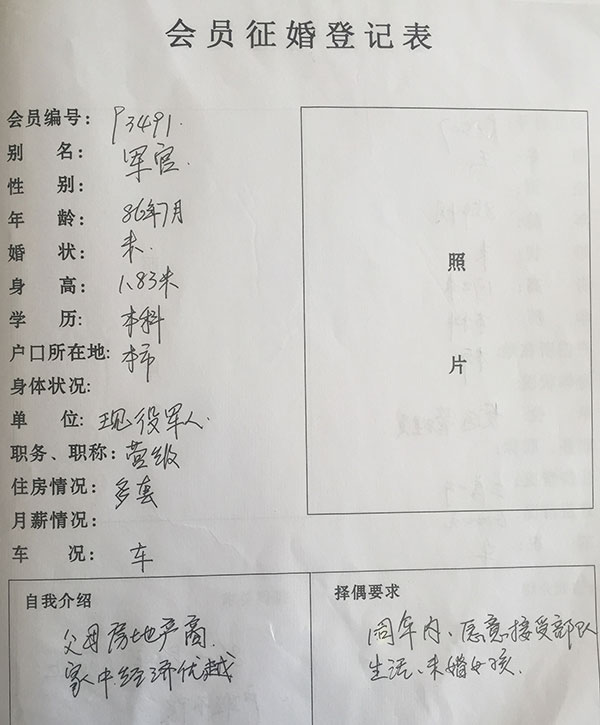 会员征婚登记表
会员编号：P3491.
别 名：军官.
性 别：
年 龄：86年7月
婚 状：未.
身 高：1.83米
学 历：本科
户口所在地：本市
身体状况：
单 位：现役军人.
职务、职称：营级
住房情况：多套
月薪情况：
车 况：车
照
片
自我介绍
父母房地产商.
家中经济优越
择偶要求
同年内、愿意接受部队
生活、未婚女孩.